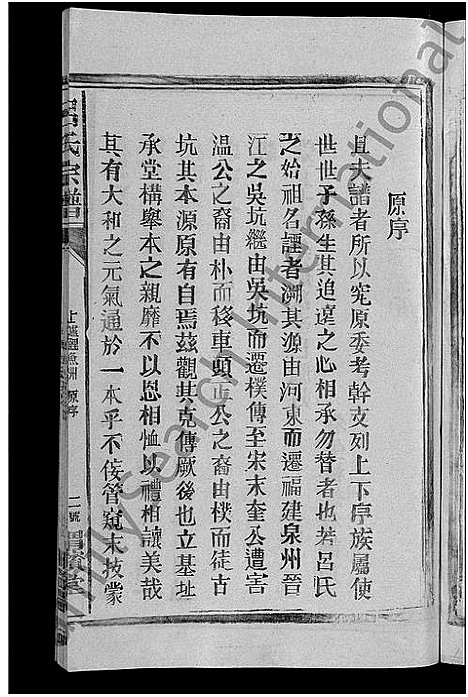 原序
且夫譜者所以究原委考幹支列上下序族屬使
世世子孫生其追遠之心相承勿替者也若呂氏
之始祖名諲者溯其源由河東而遷福建泉州晉
江之吳坑繼由吳坑而遷樸傳至宋末奎公遭害
温公之裔由朴而移車頭正公之裔由樸而徒古
坑其本源原有自焉茲觀其克傳厥後也立基址
承堂構舉本之親靡不以恩相恤以禮相讓美哉
其有大和之元氣逼於一本乎不侫管窺末技蒙
呂氏宗譜
鯉魚洲 原序
二號
渭濱堂
FamilySearch International